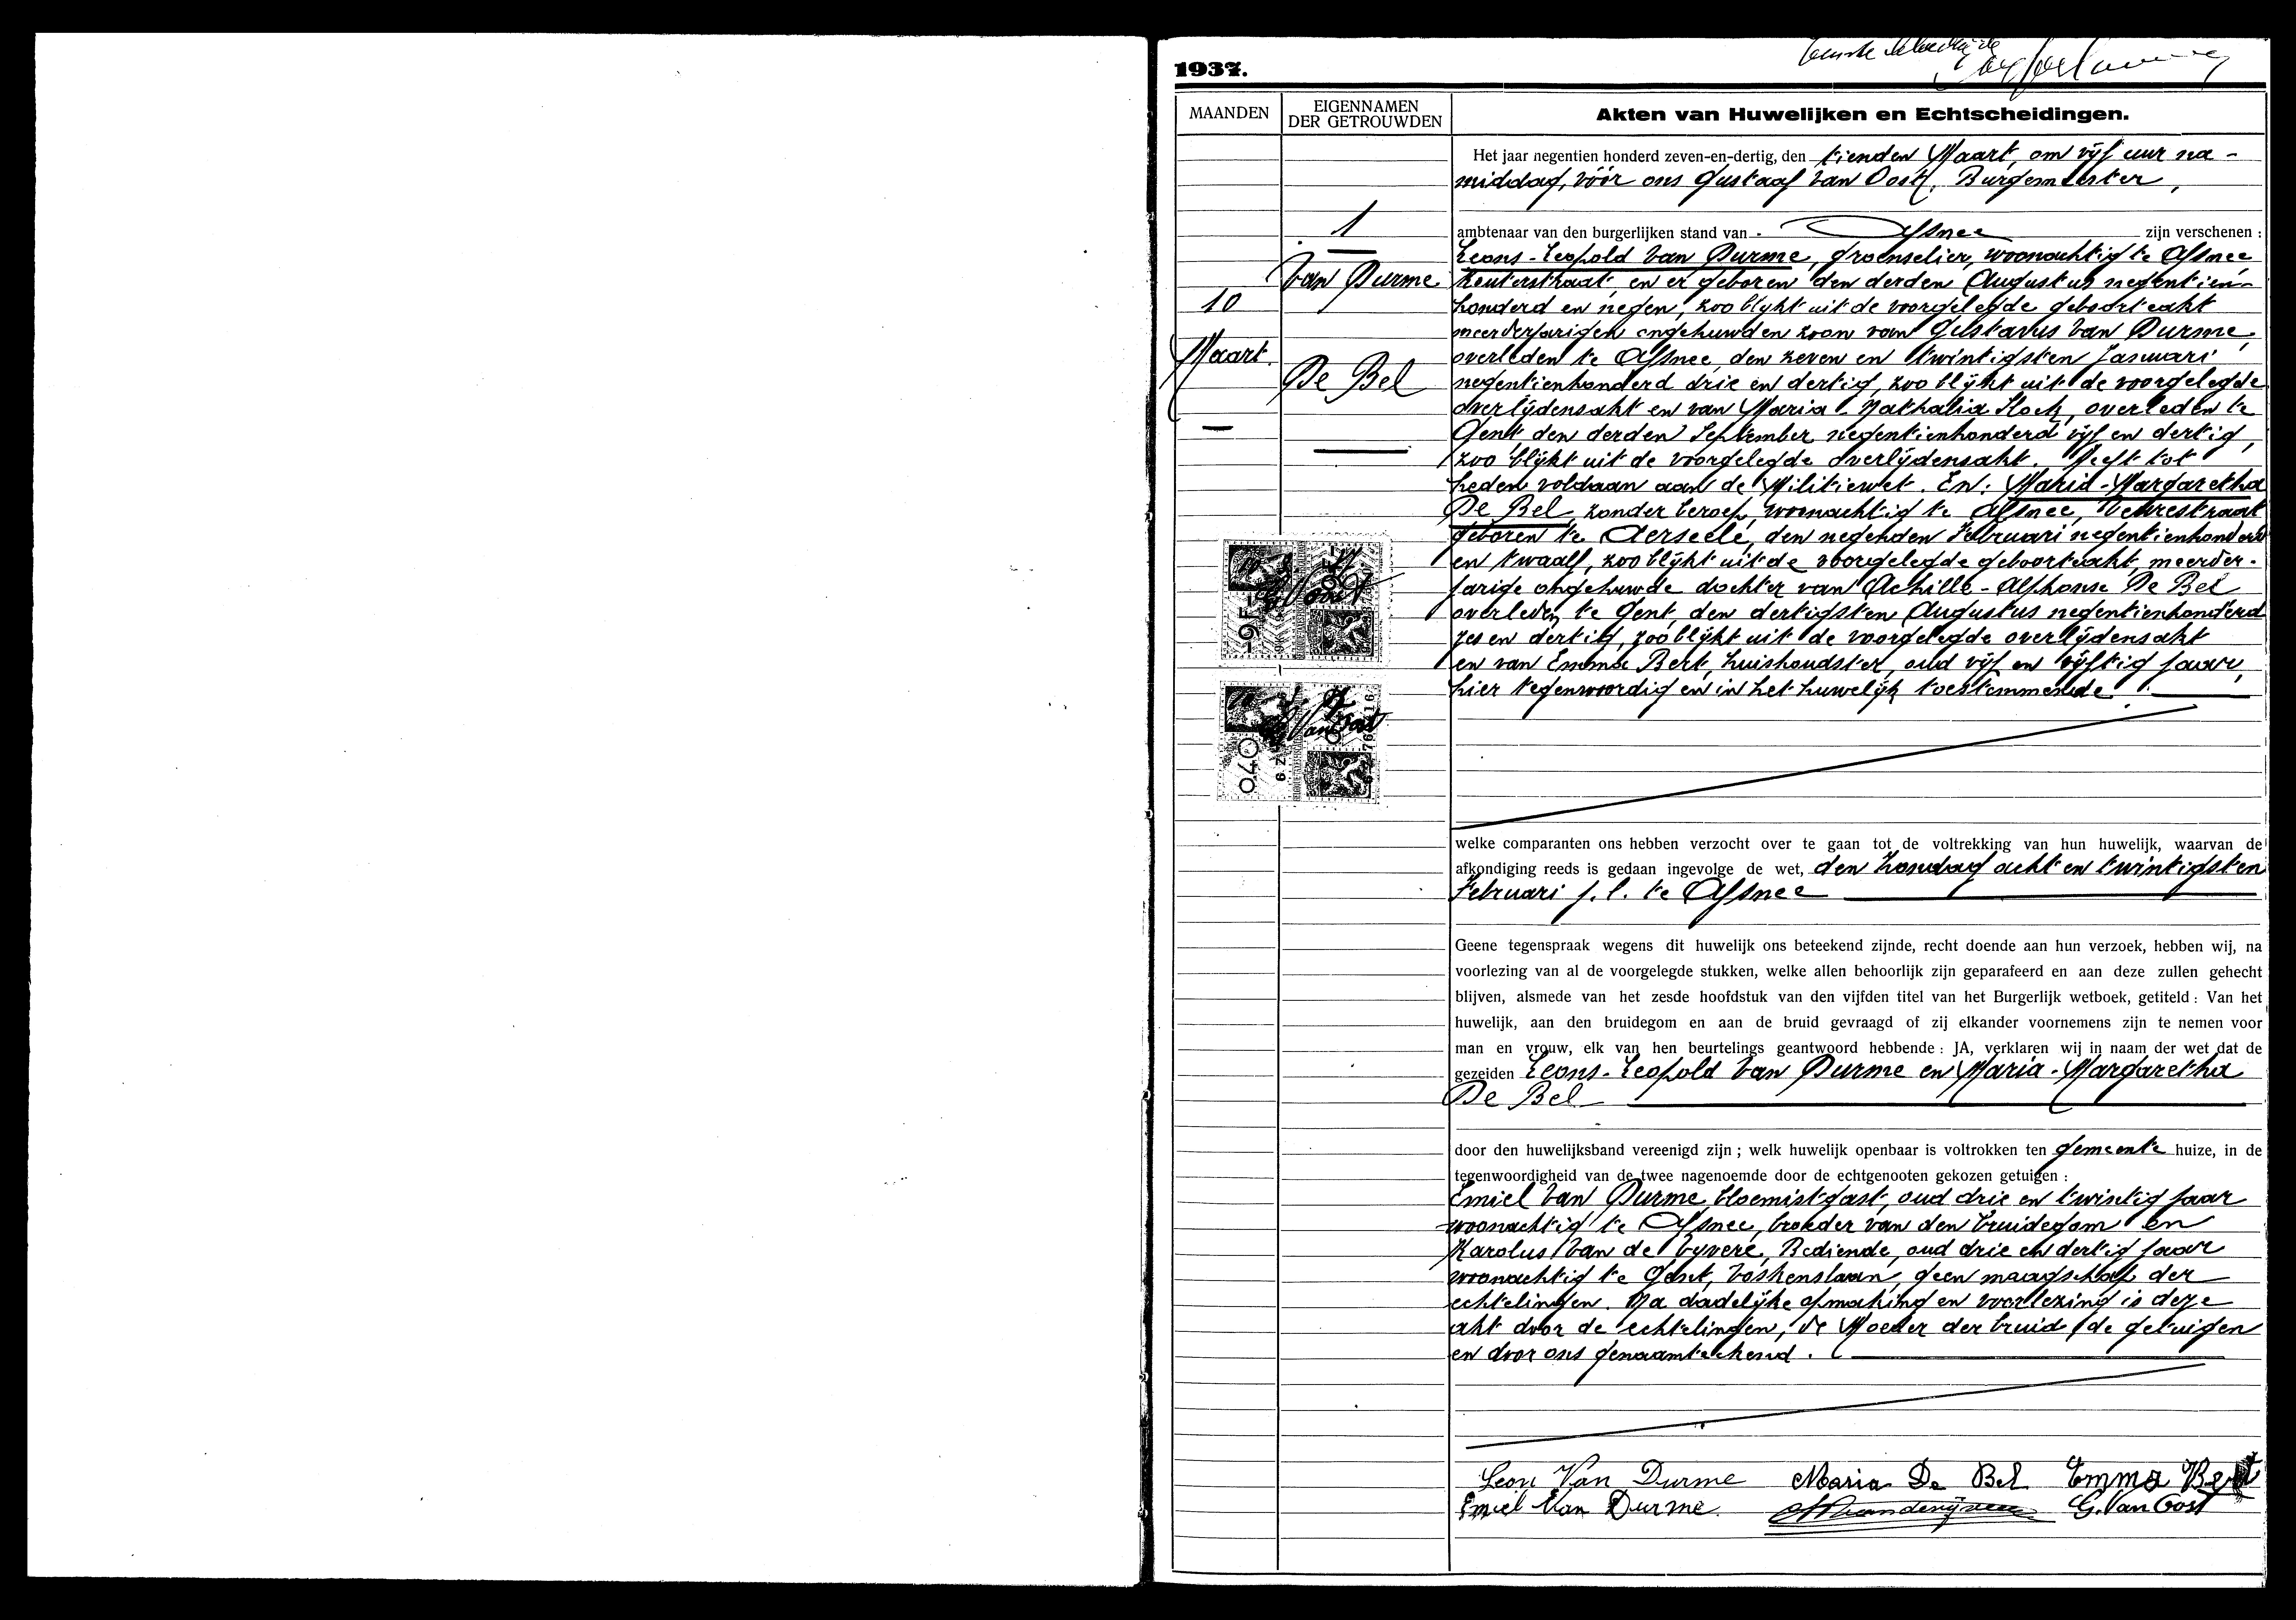 1937.
MAANDEN
EIGENNAMEN
DER GETROUWDEN
Akten van Huwelijken en Echtscheidingen.
1
Van Durme
10
Maart.
De Bel
Het jaar negentien honderd zeven-en-dertig, den tienden Maart, om vijf uur na-
middag, vóór ons Gustaaf Van Oost, Burgemeester,
ambtenaar van den burgerlijken stand van Afsnee zijn verschenen :
Leons-Leopold Van Durme, groenselier, woonachtig te Afsnee
Keuterstraat, en er geboren den derden Augustus negentien-
honderd en negen, zoo blijkt uit de voorgelegde geboorteakt
meerderjarigen ongehuwden zoon van Gustavus Van Durme,
overleden te Afsnee, den zeven en twintigsten Januari
negentienhonderd drie en dertig, zoo blijkt uit de voorgelegde
overlijdensakt en van Maria-Nathalia Slock, overleden te
Gent den derden September negentienhonderd vijf en dertig,
zoo blijkt uit de voorgelegde overlijdensakt. Heeft tot
heden voldaan aan de Militiewet. En: Maria-Margaretha
De Bel, zonder beroep, woonachtig te Afsnee,
geboren te Aerseele, den negenden Februari negentienhonderd
en twaalf, zoo blijkt uit de voorgelegde geboorteakt, meerder-
jarige ongehuwde dochter van Achille-Alphonse De Bel
overleden te Gent, den dertigsten Augustus negentienhonderd
zes en dertig, zoo blijkt uit de voorgelegde overlijdensakt
en van Emma Bert, huishoudster, oud vijf en vijftig jaar,
hier tegenwoordig en in het huwelijk toestemmende.
9 F
0,40
G. Van Oost
welke comparanten ons hebben verzocht over te gaan tot de voltrekking van hun huwelijk, waarvan de
afkondiging reeds is gedaan ingevolge de wet, den Zondag acht en twintigsten
Februari j.l. te Afsnee
Geene tegenspraak wegens dit huwelijk ons beteekend zijnde, recht doende aan hun verzoek, hebben wij, na
voorlezing van al de voorgelegde stukken, welke allen behoorlijk zijn geparafeerd en aan deze zullen gehecht
blijven, alsmede van het zesde hoofdstuk van den vijfden titel van het Burgerlijk wetboek, getiteld : Van het
huwelijk, aan den bruidegom en aan de bruid gevraagd of zij elkander voornemens zijn te nemen voor
man en vrouw, elk van hen beurtelings geantwoord hebbende : JA, verklaren wij in naam der wet dat de
gezeiden Leons-Leopold Van Durme en Maria-Margaretha
De Bel
door den huwelijksband vereenigd zijn ; welk huwelijk openbaar is voltrokken ten gemeente huize, in de
tegenwoordigheid van de twee nagenoemde door de echtgenooten gekozen getuigen :
Emiel Van Durme, bloemistgast, oud drie en twintig jaar
woonachtig te Afsnee, broeder van den bruidegom en
Karolus Van de Vyvere, Bediende, oud drie en dertig jaar
woonachtig te Gent, Voskenslaan, geen maagschap der
echtelingen. Na dadelijke opmaking en voorlezing is deze
akt door de echtelingen, de Moeder der bruid, de getuigen
en door ons genaamteekend.
Leon Van Durme Maria De Bel Emma Bert
Emiel Van Durme G. Van Oost